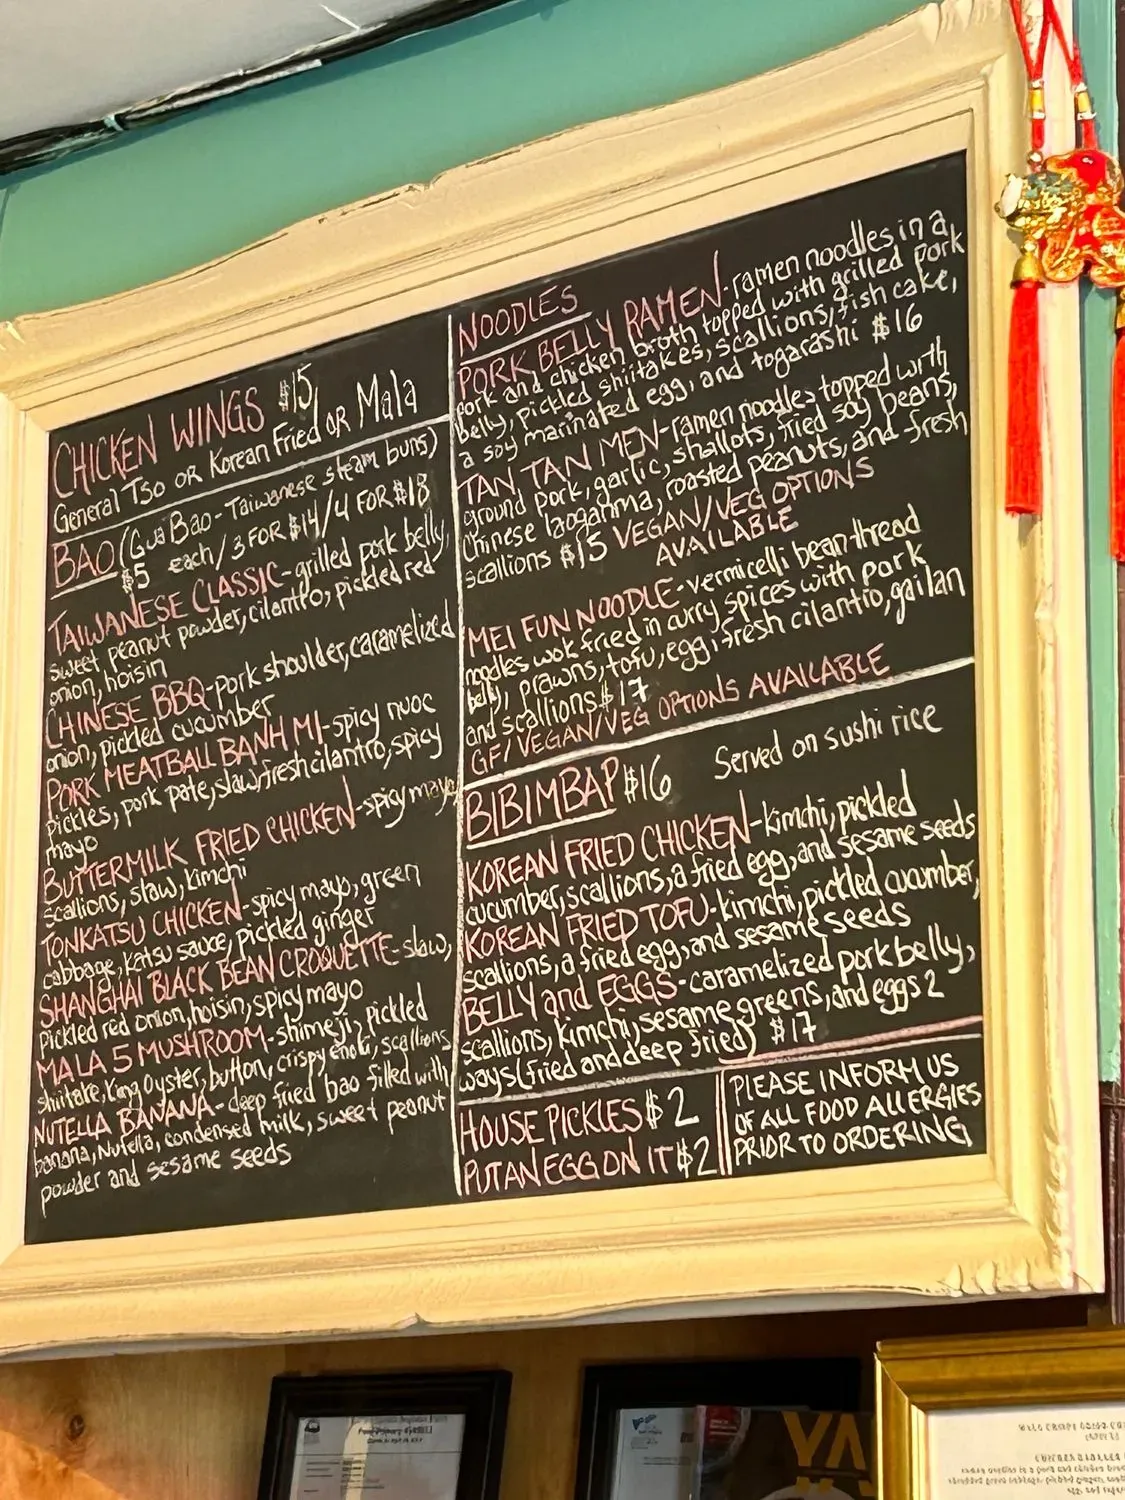 CHICKEN WINGS $15
General Tso OR Korean Fried OR Mala
BAO (Gua Bao - Taiwanese steam buns)
$5 each / 3 FOR $14 / 4 FOR $18
TAIWANESE CLASSIC - grilled pork belly,
sweet peanut powder, cilantro, pickled red
onion, hoisin
CHINESE BBQ - pork shoulder, caramelized
onion, pickled cucumber
PORK MEATBALL BANH MI - spicy nuoc
pickles, pork pate, slaw, fresh cilantro, spicy
mayo
BUTTERMILK FRIED CHICKEN - spicy mayo,
scallions, slaw, kimchi
TONKATSU CHICKEN - spicy mayo, green
cabbage, katsu sauce, pickled ginger
SHANGHAI BLACK BEAN CROQUETTE - slaw,
pickled red onion, hoisin, spicy mayo
MALA 5 MUSHROOM - shimeji, pickled
shiitake, king oyster, button, crispy enoki, scallions
NUTELLA BANANA - deep fried bao filled with
banana, Nutella, condensed milk, sweet peanut
powder and sesame seeds
NOODLES
PORK BELLY RAMEN - ramen noodles, in a
pork and chicken broth topped with grilled pork
belly, pickled shiitakes, scallions, fish cake,
a soy marinated egg, and togarashi $16
TAN TAN MEN - ramen noodles topped with
ground pork, garlic, shallots, fried soy beans,
Chinese laoganma, roasted peanuts, and fresh
scallions $15 VEGAN/VEG OPTIONS
AVAILABLE
MEI FUN NOODLE - vermicelli bean thread
noodles wok fried in curry spices with pork
belly, prawns, tofu, egg, fresh cilantro, gailan
and scallions $17
GF/VEGAN/VEG OPTIONS AVAILABLE
BIBIMBAP $16 Served on sushi rice
KOREAN FRIED CHICKEN - kimchi, pickled
cucumber, scallions, a fried egg, and sesame seeds
KOREAN FRIED TOFU - kimchi, pickled cucumber,
scallions, a fried egg, and sesame seeds
BELLY and EGGS - caramelized pork belly,
scallions, kimchi, sesame greens, and eggs 2
ways (fried and deep fried) $17
HOUSE PICKLES $2
PUT AN EGG ON IT $2
PLEASE INFORM US
OF ALL FOOD ALLERGIES
PRIOR TO ORDERING